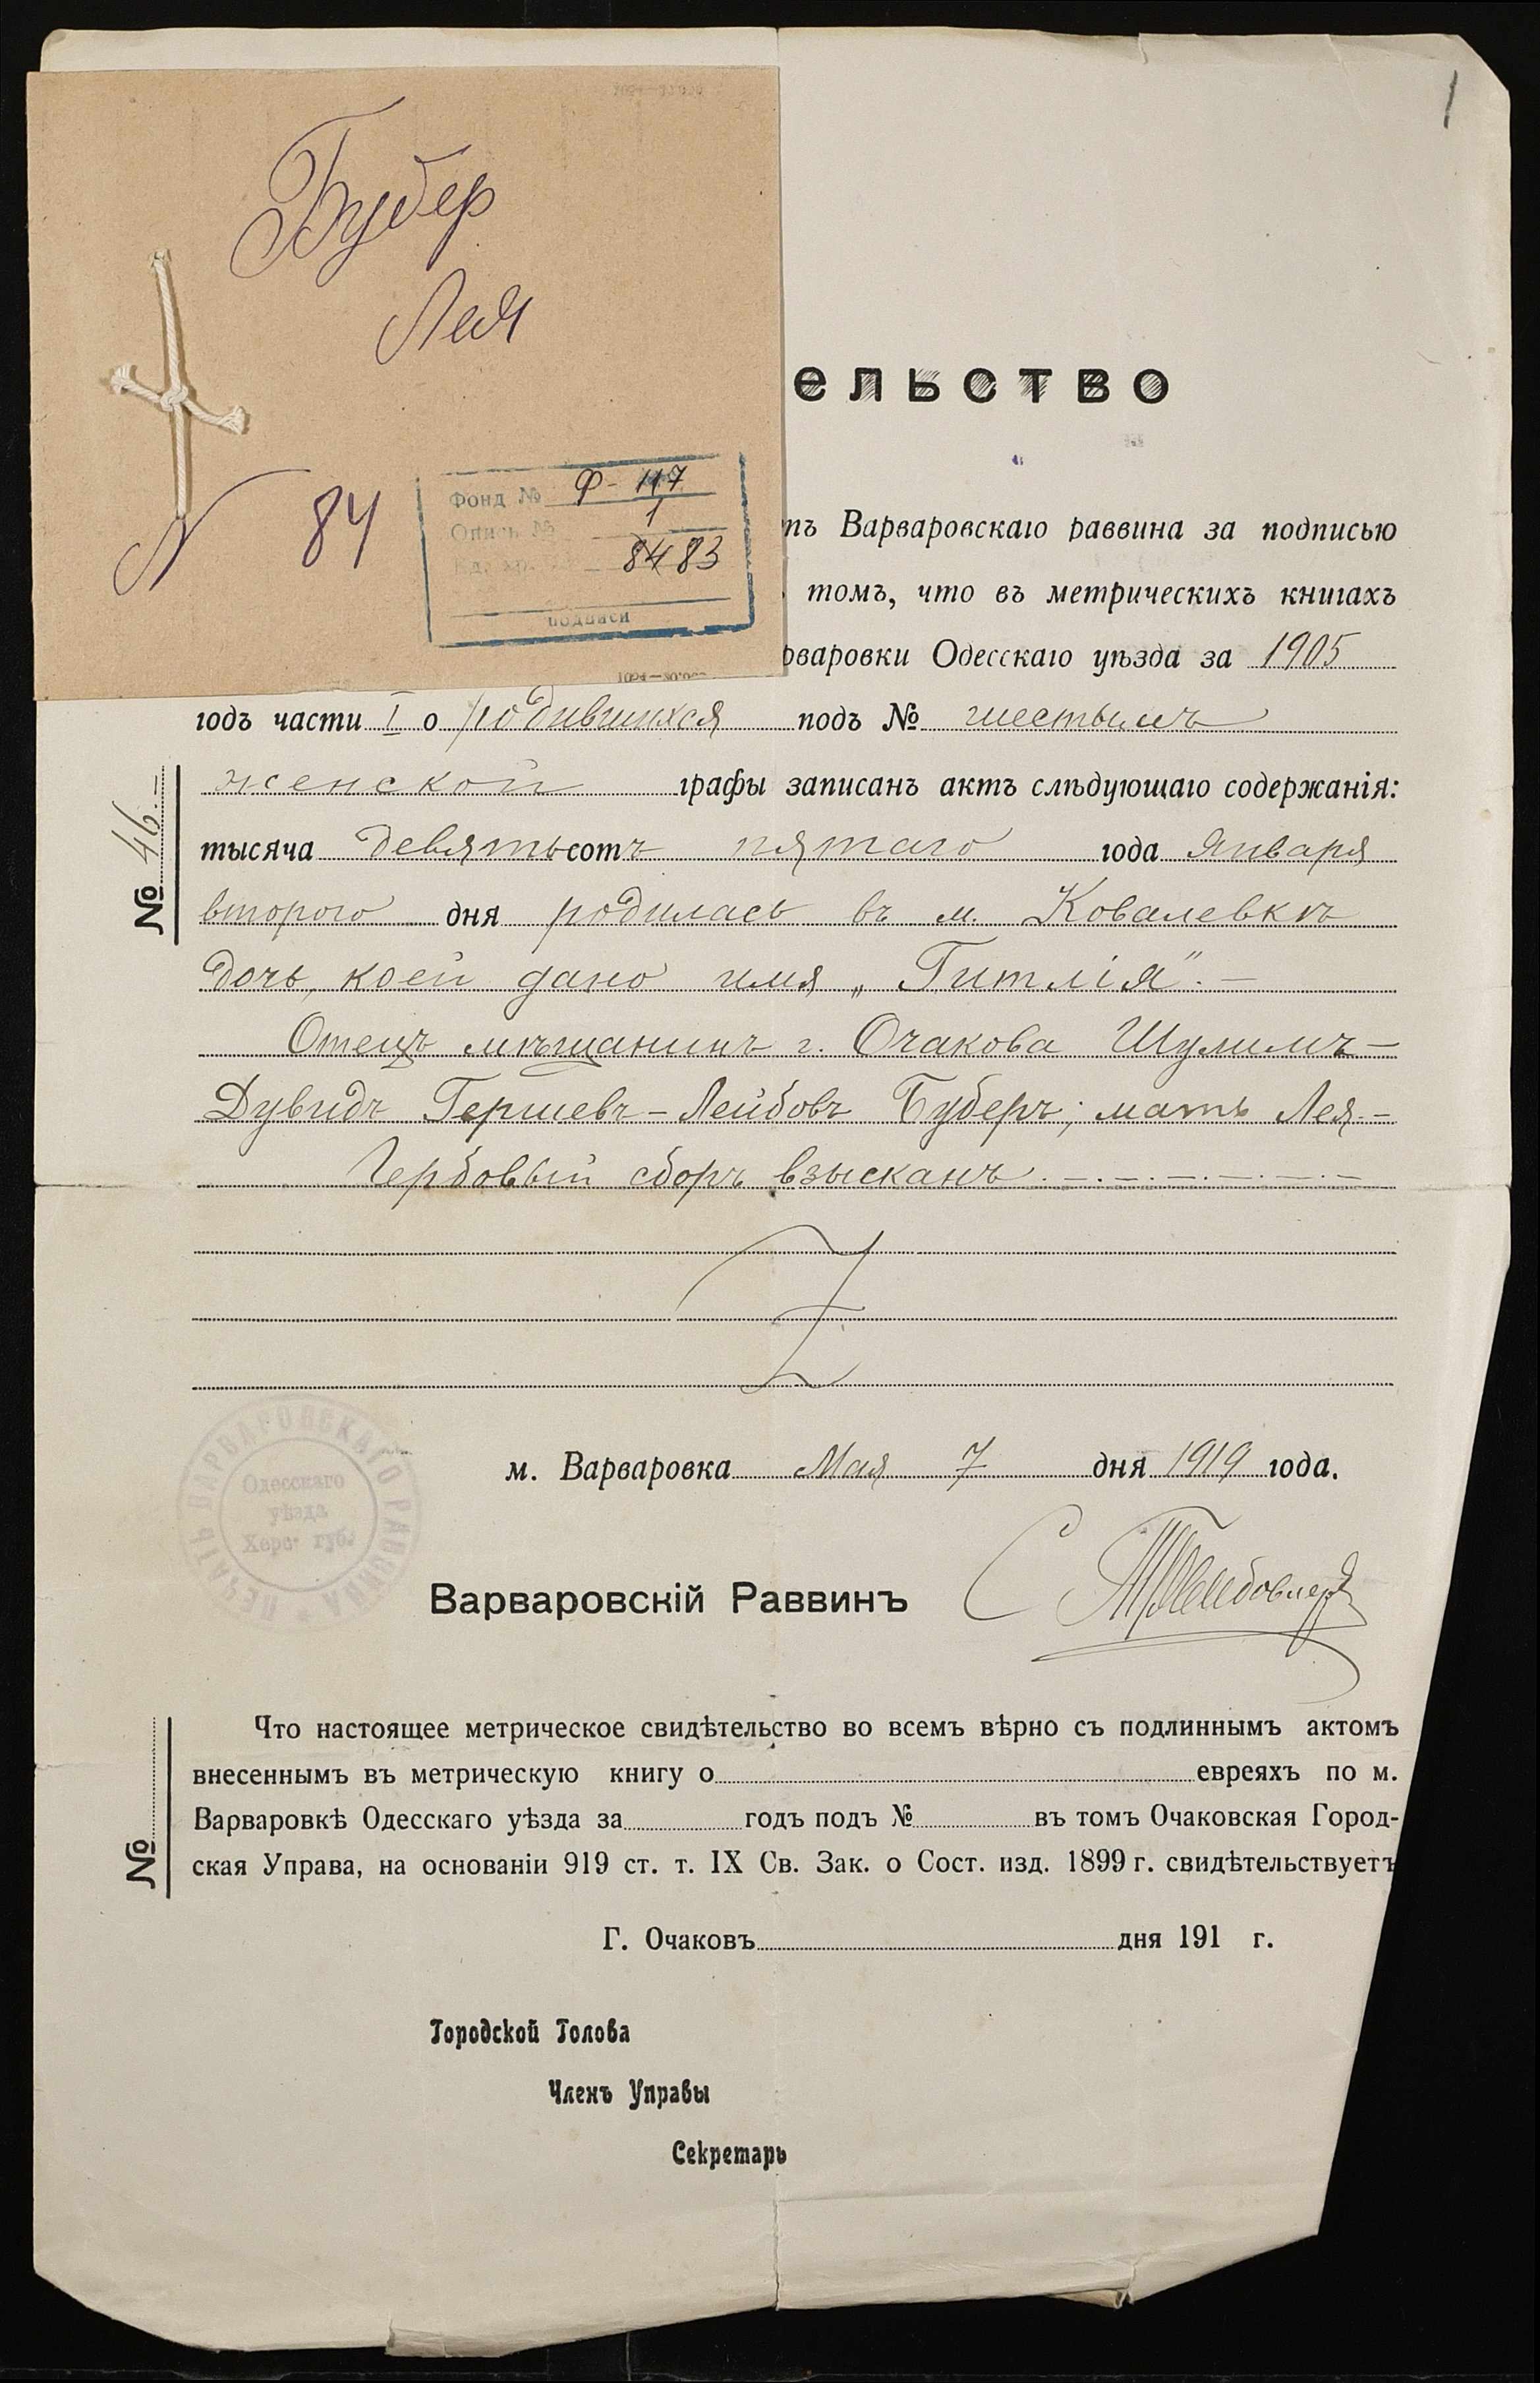 1
Бубер
Лея
N 84
Фонд № Ф-117
Опись № 1
Ед. хр. 84 83
подписи
ельство
тъ Варваровскаго раввина за подписью
томъ, что въ метрическихъ книгахъ
рваровки Одесскаго уѣзда за 1905
годъ части I о родившихся подъ № шестымъ
женской графы записанъ актъ слѣдующаго содержанія:
№ 46.-
тысяча девятьсотъ пятаго года Января
второго дня родилась въ м. Ковалевкѣ
дочь, коей дано имя „Гитлія". -
Отецъ мѣщанинъ г. Очакова Шулимъ-
Дувидъ Гершевъ-Лейбовъ Буберъ; мать Лея.-
Гербовый сборъ взысканъ.-.-.-.-.-.-
м. Варваровка Мая 7 дня 1919 года.
ПЕЧАТЬ ВАРВАРОВСКАГО РАВВИНА
Одесскаго
уѣзда
Херс. губ.
Варваровскій Раввинъ
Что настоящее метрическое свидѣтельство во всемъ вѣрно съ подлиннымъ актомъ
внесеннымъ въ метрическую книгу о евреяхъ по м.
Варваровкѣ Одесскаго уѣзда за годъ подъ № въ томъ Очаковская Город-
ская Управа, на основаніи 919 ст. т. IX Св. Зак. о Сост. изд. 1899 г. свидѣтельствуетъ
№
Г. Очаковъ дня 191 г.
Городской Голова
Членъ Управы
Секретарь